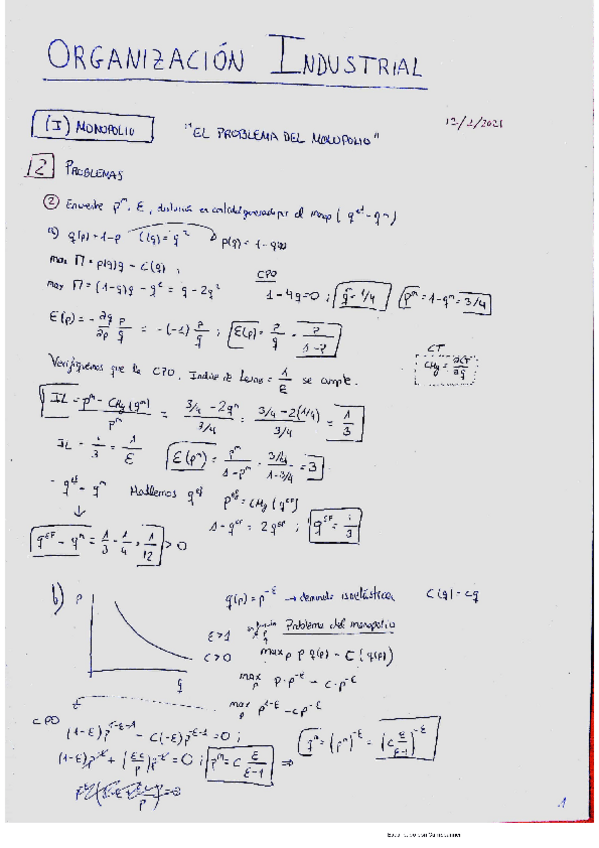 ORGANIZACIÓN INDUSTRIAL
(I) MONOPOLIO "EL PROBLEMA DEL MONOPOLIO" 12/2/2021
12 PROBLEMAS
② Encuentre pᵐ, ε, distorsión en cantidad generada por el monop (qᵉᶠ - qᵐ)
a) q(p) = 1-p C(q) = q² p(q) = 1-q
max Π = p(q)q - C(q) ;
CPO
max Π = (1-q)q - q² = q - 2q² 1-4q=0 ; qᵐ = 1/4 pᵐ = 1-qᵐ = 3/4
E(p) = - ∂q/∂p p/q = -(-1) p/q ; E(p) = p/q = p/1-p
CT
CMg = ∂CT/∂q
Verifiquemos que la CPO, Indice de Lerner = 1/ε se cumple.
IL = pᵐ - CMg(qᵐ)/pᵐ = 3/4 - 2qᵐ / 3/4 = 3/4 - 2(1/4) / 3/4 = 1/3
IL = 1/3 = 1/ε E(pᵐ) = pᵐ/1-pᵐ = 3/4 / 1-3/4 = 3
- qᵉᶠ - qᵐ Hallemos qᵉᶠ pᵉᶠ = CMg(qᵉᶠ)
↓ 1-qᵉᶠ = 2qᵉᶠ ; qᵉᶠ = 1/3
qᵉᶠ - qᵐ = 1/3 - 1/4 = 1/12 > 0
b) p q(p) = p^-ε → demanda isoelástica C(q) = cq
ε>1 Problema del monopolio
c>0 max p p q(p) - C(q(p))
q max p p·p^-ε - c·p^-ε
max p p^1-ε - cp^-ε
CPO
(1-ε)p^1-ε-1 - c(-ε)p^-ε-1 = 0 ;
(1-ε)p^-ε + (εc/p)p^-ε = 0 ; pᵐ = c ε/ε-1 ⇒ qᵐ = (pᵐ)^-ε = (c ε/ε-1)^-ε
1